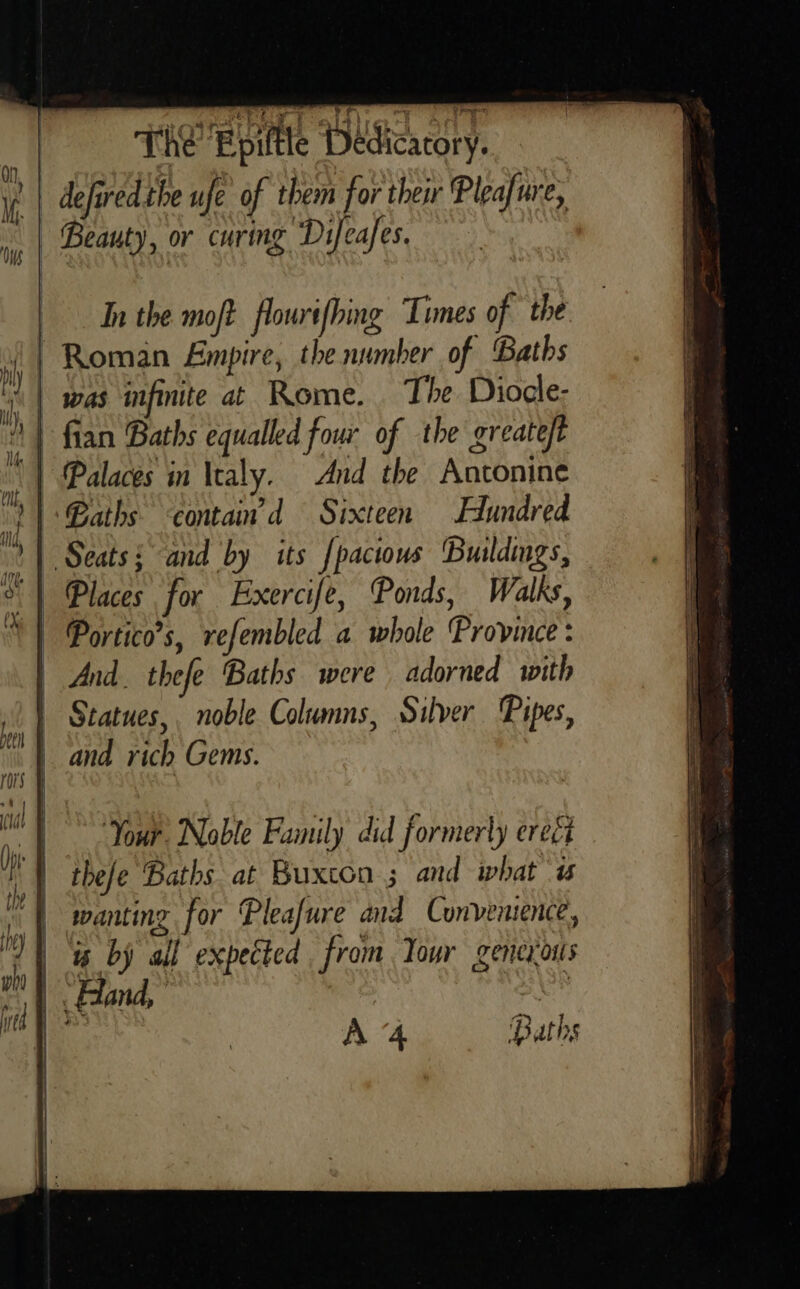 The Epiſtle Dedicatory.
deſired the uſe of them for their Pleaſure,
Beauty, or curing Diſeaſes.
In the moſt flouriſhing Times of the
Roman Empire, the number of Baths
was infinite at Rome. The Diocle-
ſian Baths equalled four of the greateſt
Palaces in Italy. And the Antonine
Baths contain'd Sixteen Hundred
Seats; and by its ſpacious Buildings,
Places for Exerciſe, Ponds, Walks,
Portico's, reſembled a whole Province:
And theſe Baths were adorned with
Statues, noble Columns, Silver Pipes,
and rich Gems.
Your Noble Family did formerly erect
theſe Baths at Buxton; and what is
wanting for Pleaſure and Convenience,
is by all expected from Your generous
Hand,
A 4 Baths